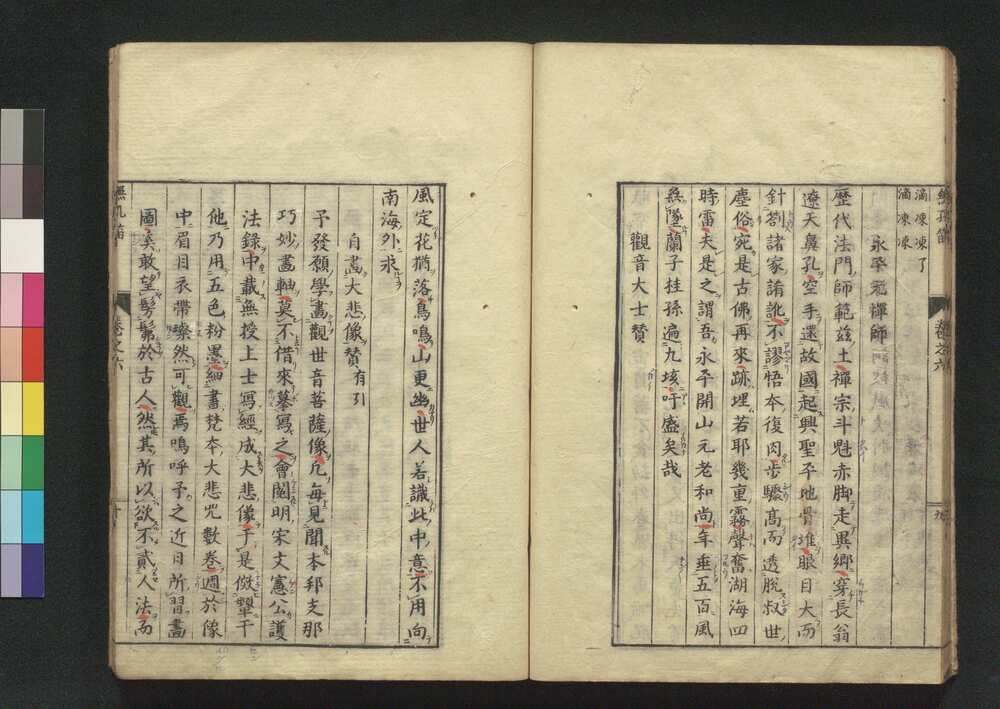 滴凍凍了
滴凍凍
永平元禪師
歷代法門師範茲土禪宗斗魁赤脚走異鄉穿長翁
遼天鼻孔空手還故國起興聖平地骨堆眼目大而
針劄諸家誵訛不謬悟本復肉步驟高而透脫叔世
塵俗宛是古佛再來跡埋若耶幾重霧聲奮湖海四
時雷夫是之謂吾永平開山元老和尚年垂五百風
無墜蘭子桂孫遍九垓吁盛矣哉
觀音大士賛
卷之六
九
風定花猶落鳥鳴山更幽世人若識此中意不用向
南海外求
自畫大悲像賛有引
予發願學畫觀世音菩薩像凡每見聞本邦支那
巧妙畫軸莫不借來摹寫之會閱明宋文憲公護
法錄中載無授上士寫經成大悲像于是傚顰干
他乃用五色粉墨細書梵本大悲咒數卷週於像
中眉目衣帶燦然可觀焉嗚呼予之近日所習畫
圖奚敢望髣髴於古人然其所以欲不貳人法而
無孔笛
卷之六
十